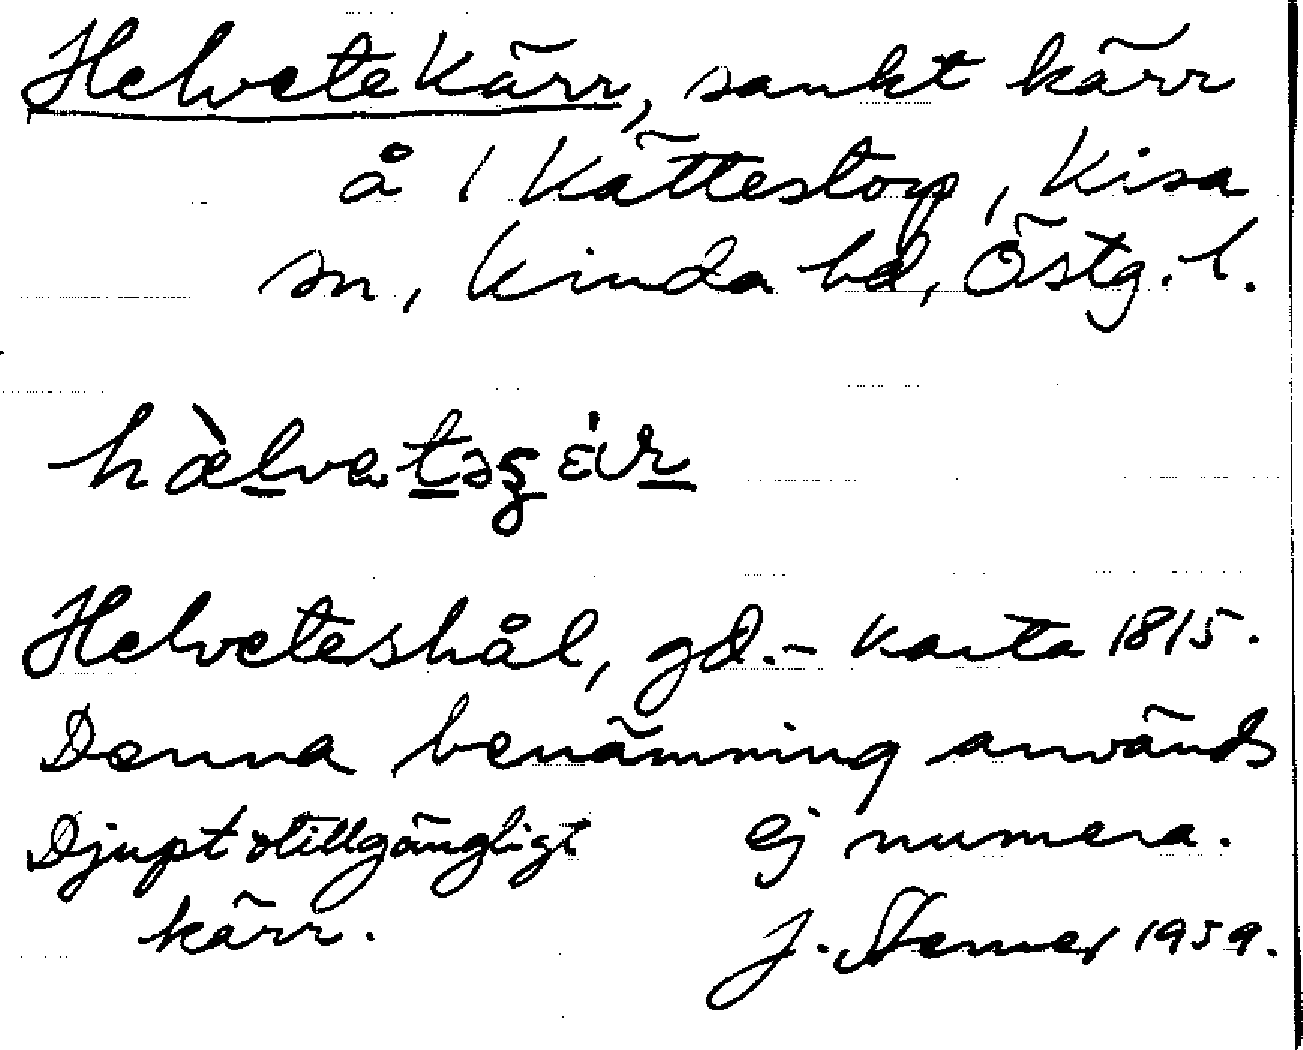 Helvetekärr, sankt kärr
å 1 Kättestorp, Kisa
sn, Kinda hd, Östg. l.
hæ̀lvetəʒ
Helveteshål, gd. - Karta 1815.
Denna benämning används
ej numera.
Djupt otillgängligt
kärr.
J. 1959.